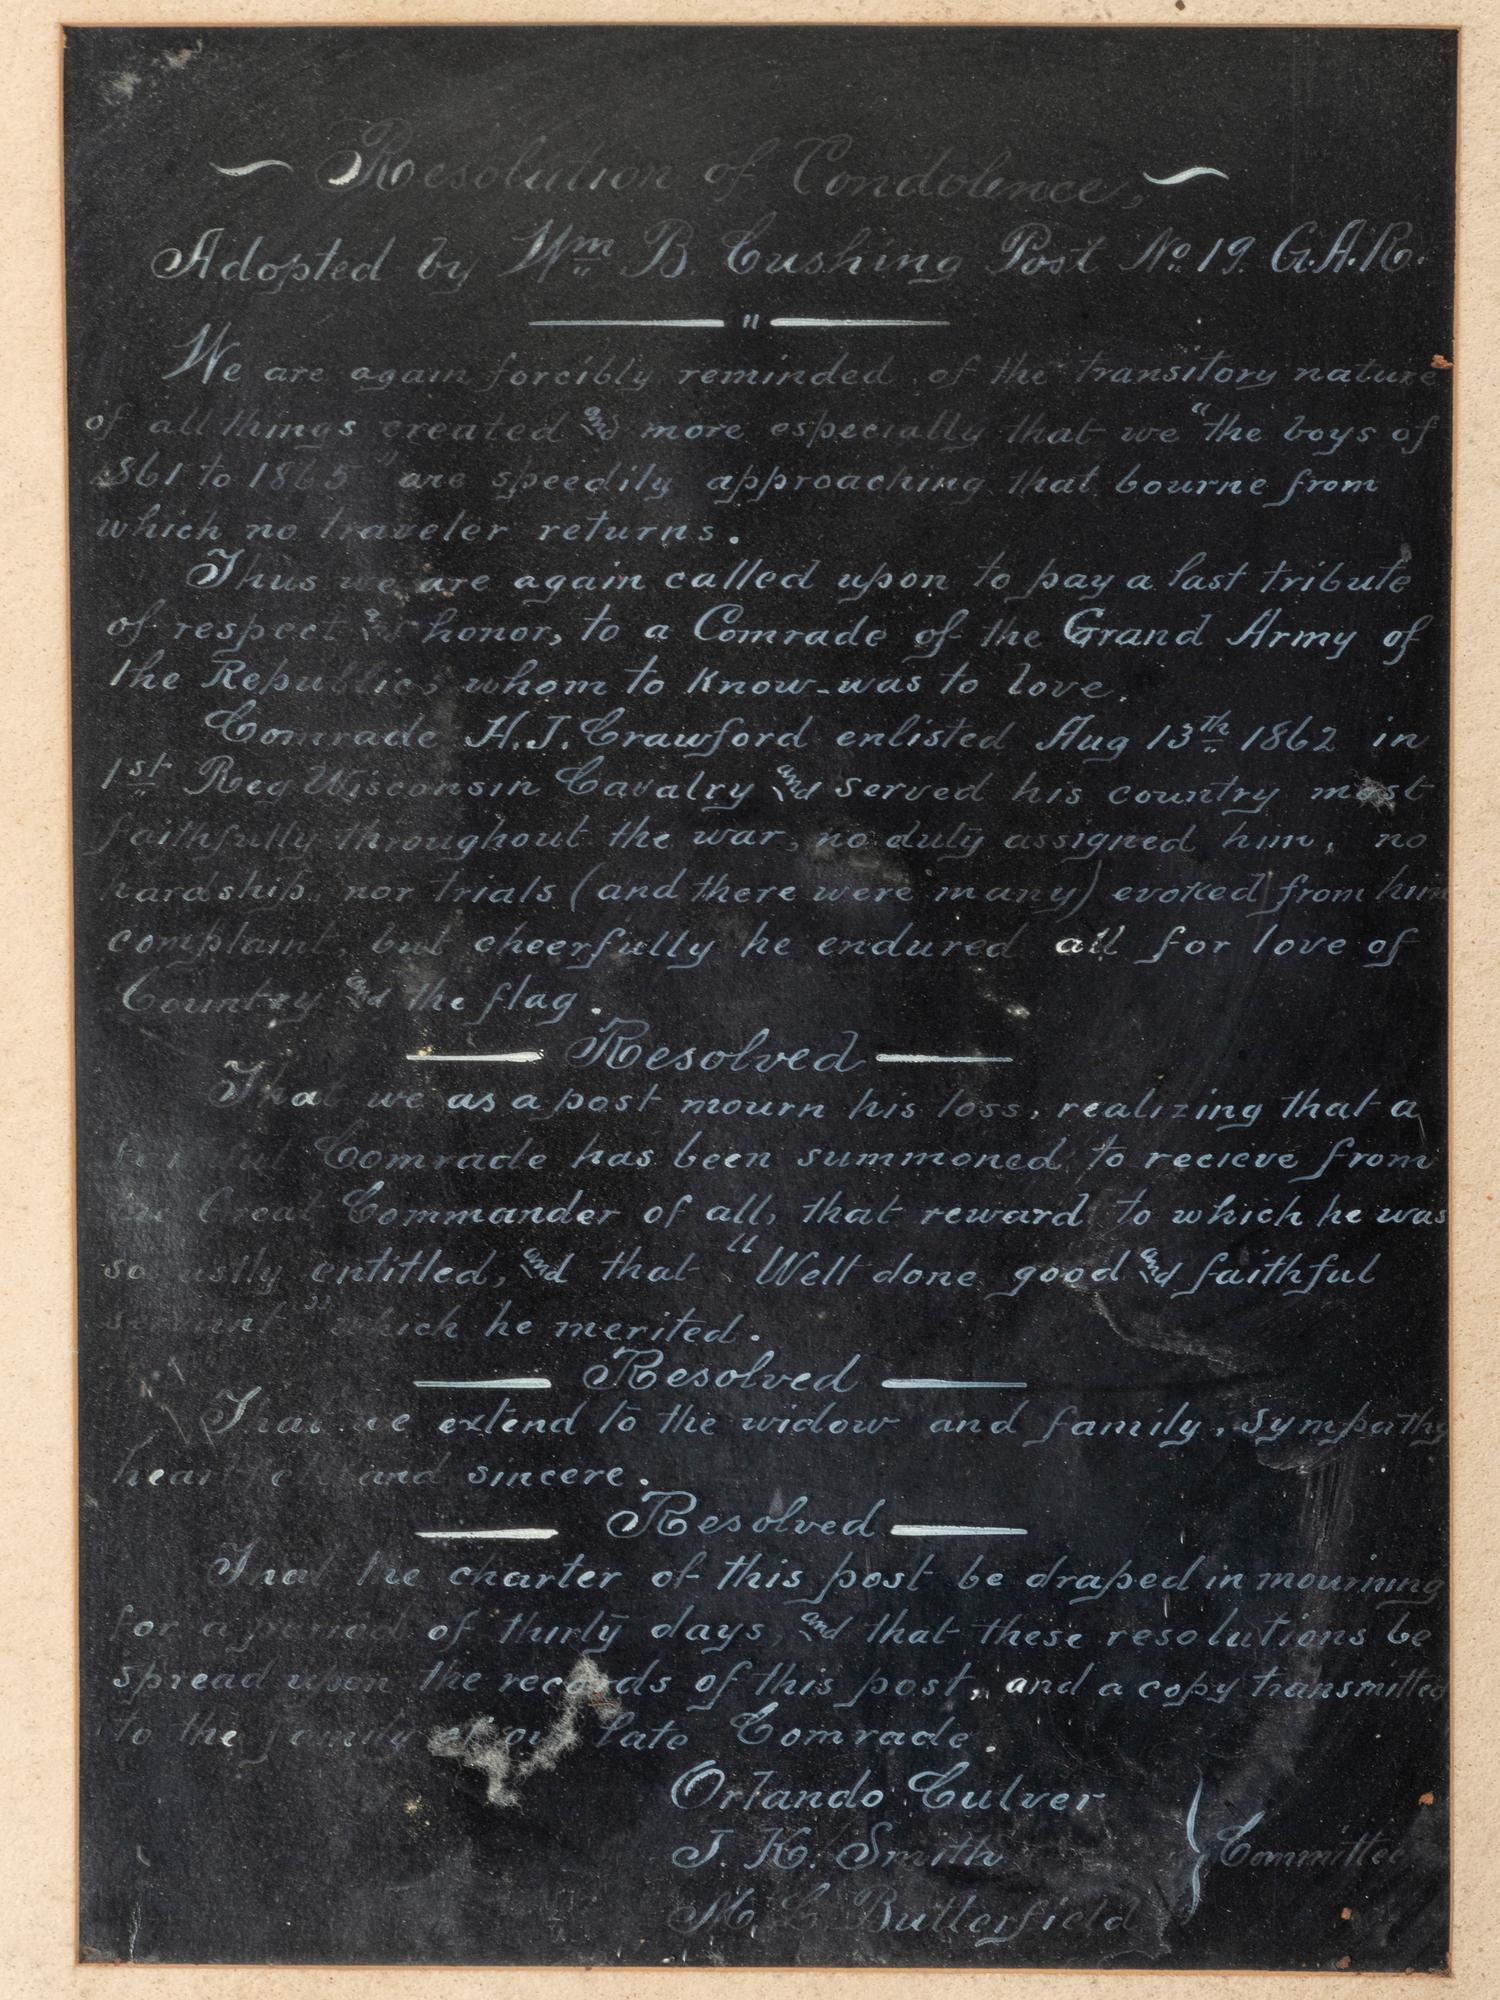 Resolution of Condolence,
Adopted by Wm B. Cushing Post No 19. G.A.R.
We are again forcibly reminded of the transitory nature
of all things created and more especially that we "the boys of
1861 to 1865" are speedily approaching that bourne from
which no traveler returns.
Thus we are again called upon to pay a last tribute
of respect and honor, to a Comrade of the Grand Army of
the Republic, whom to know was to love.
Comrade H.J. Crawford enlisted Aug 13th 1862 in
1st Reg Wisconsin Cavalry and served his country most
faithfully throughout the war, no duty assigned him, no
hardship, nor trials (and there were many) evoked from him
complaint, but cheerfully he endured all for love of
Country and the flag.
Resolved
That we as a post mourn his loss, realizing that a
Comrade has been summoned to recieve from
the Great Commander of all, that reward to which he was
so justly entitled, and that "Well done good and faithful
servant" which he merited.
Resolved
That we extend to the widow and family, sympathy
heartfelt and sincere.
Resolved
That the charter of this post be draped in mourning
for a period of thirty days, and that these resolutions be
spread upon the records of this post, and a copy transmitted
to the family of our late Comrade.
Orlando Culver
J. K. Smith
Committee
M. L. Butterfield